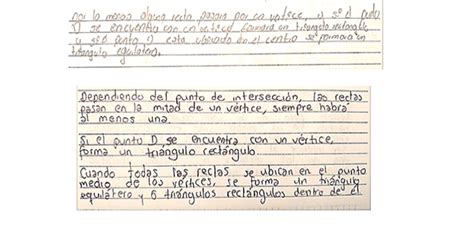 por lo menos alguna recta pasara por un vertice, y si el punto
D se encuentra con un vertice formara un triangulo rectangulo,
y si el punto D esta ubicado en el centro se formara un
triangulo equilatero.
Dependiendo del punto de intersección, las rectas
pasan en la mitad de un vértice, siempre habrá
al menos una.
Si el punto D, se encuentra con un vértice,
forma un triángulo rectángulo.
Cuando todas las rectas se ubican en el punto
medio de los vertices, se forma un triángulo
equilátero y 6 triángulos rectángulos dentro de él.